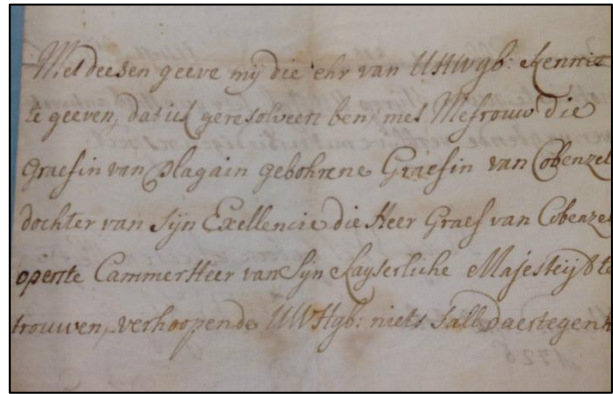 Met deesen geeve mij die ehr van UHWgb: kennis
te geeven, dat ick geresolveert ben, met Mefrouw die
Graefin van Plagain gebohrene Graefin van Cobenzel
dochter van sijn Exellencie die Heer Graef van Cobenzel
operste CammerHeer van Sijn Kayserliche Majesteijdt te
trouwen, verhoopende UWHgb: niets sall daertegen